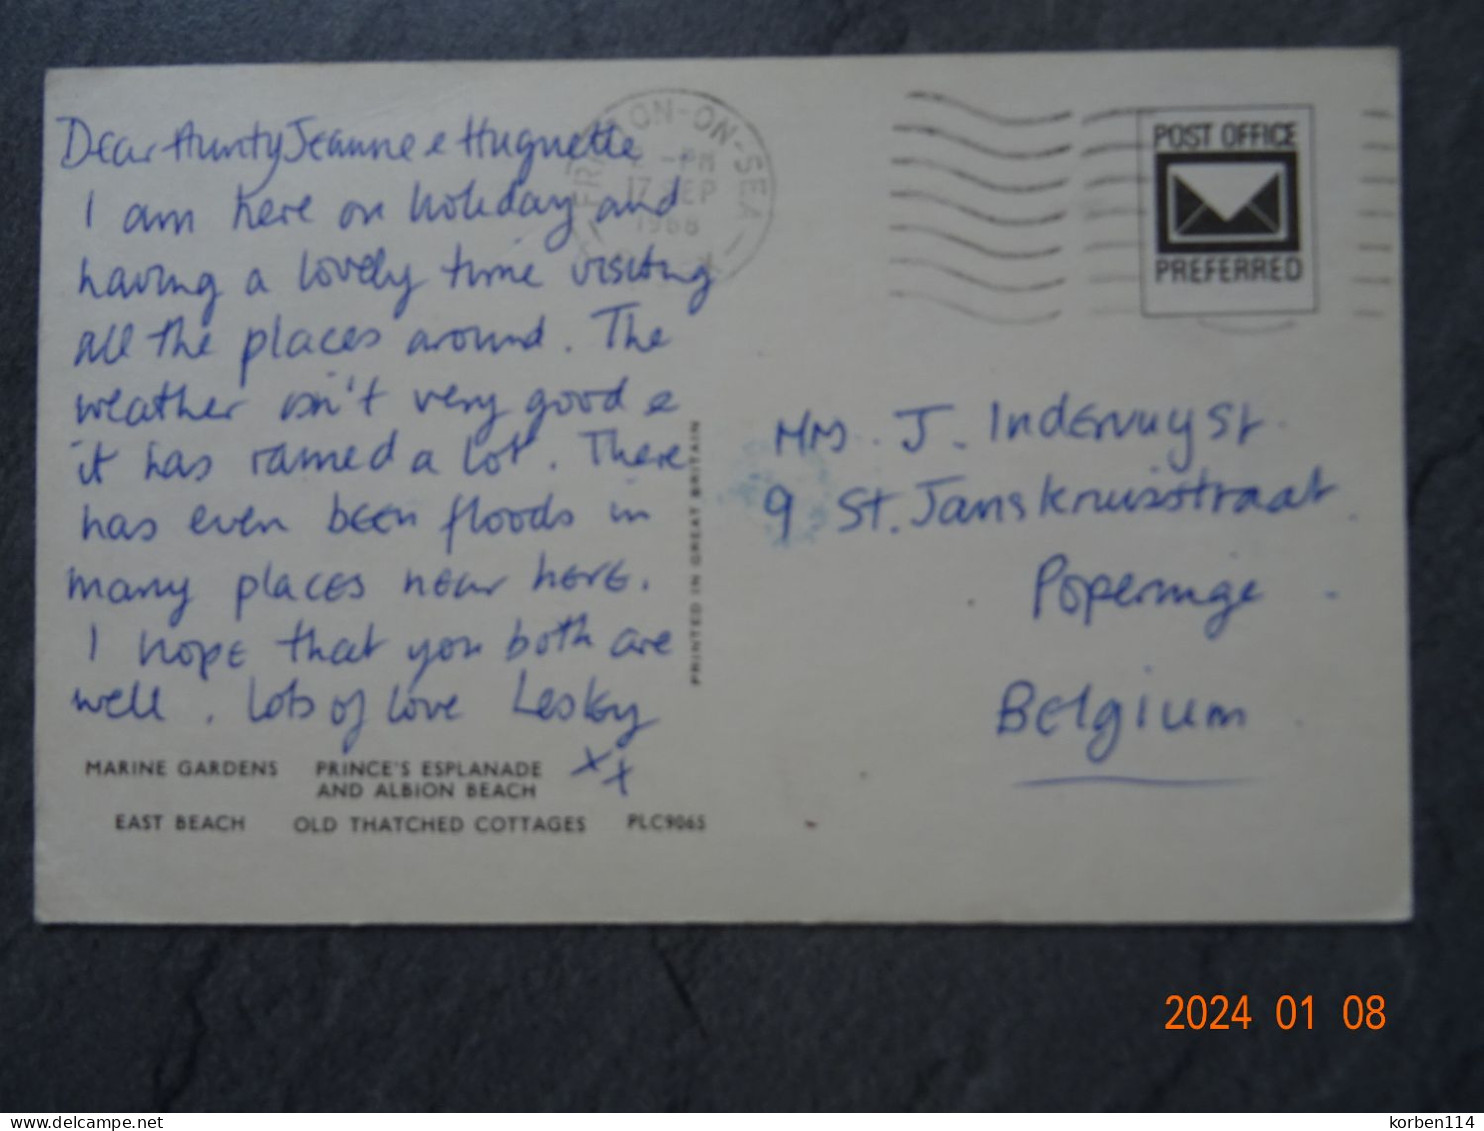 Dear Aunty Jeanne & Huguette
I am here on holiday and
having a lovely time visiting
all the places around. The
weather isn't very good &
it has rained a lot. There
has even been floods in
many places near here.
I hope that you both are
well. Lots of love Lesley
xx
MARINE GARDENS PRINCE'S ESPLANADE
AND ALBION BEACH
EAST BEACH OLD THATCHED COTTAGES PLC9065
PRINTED IN GREAT BRITAIN
ON-ON-SEA
-PM
17 SEP
1968
POST OFFICE
PREFERRED
J. Indervuyst.
9 St. Janskruisstraat.
Poperinge
Belgium
2024 01 08
delcampe.net
korben114